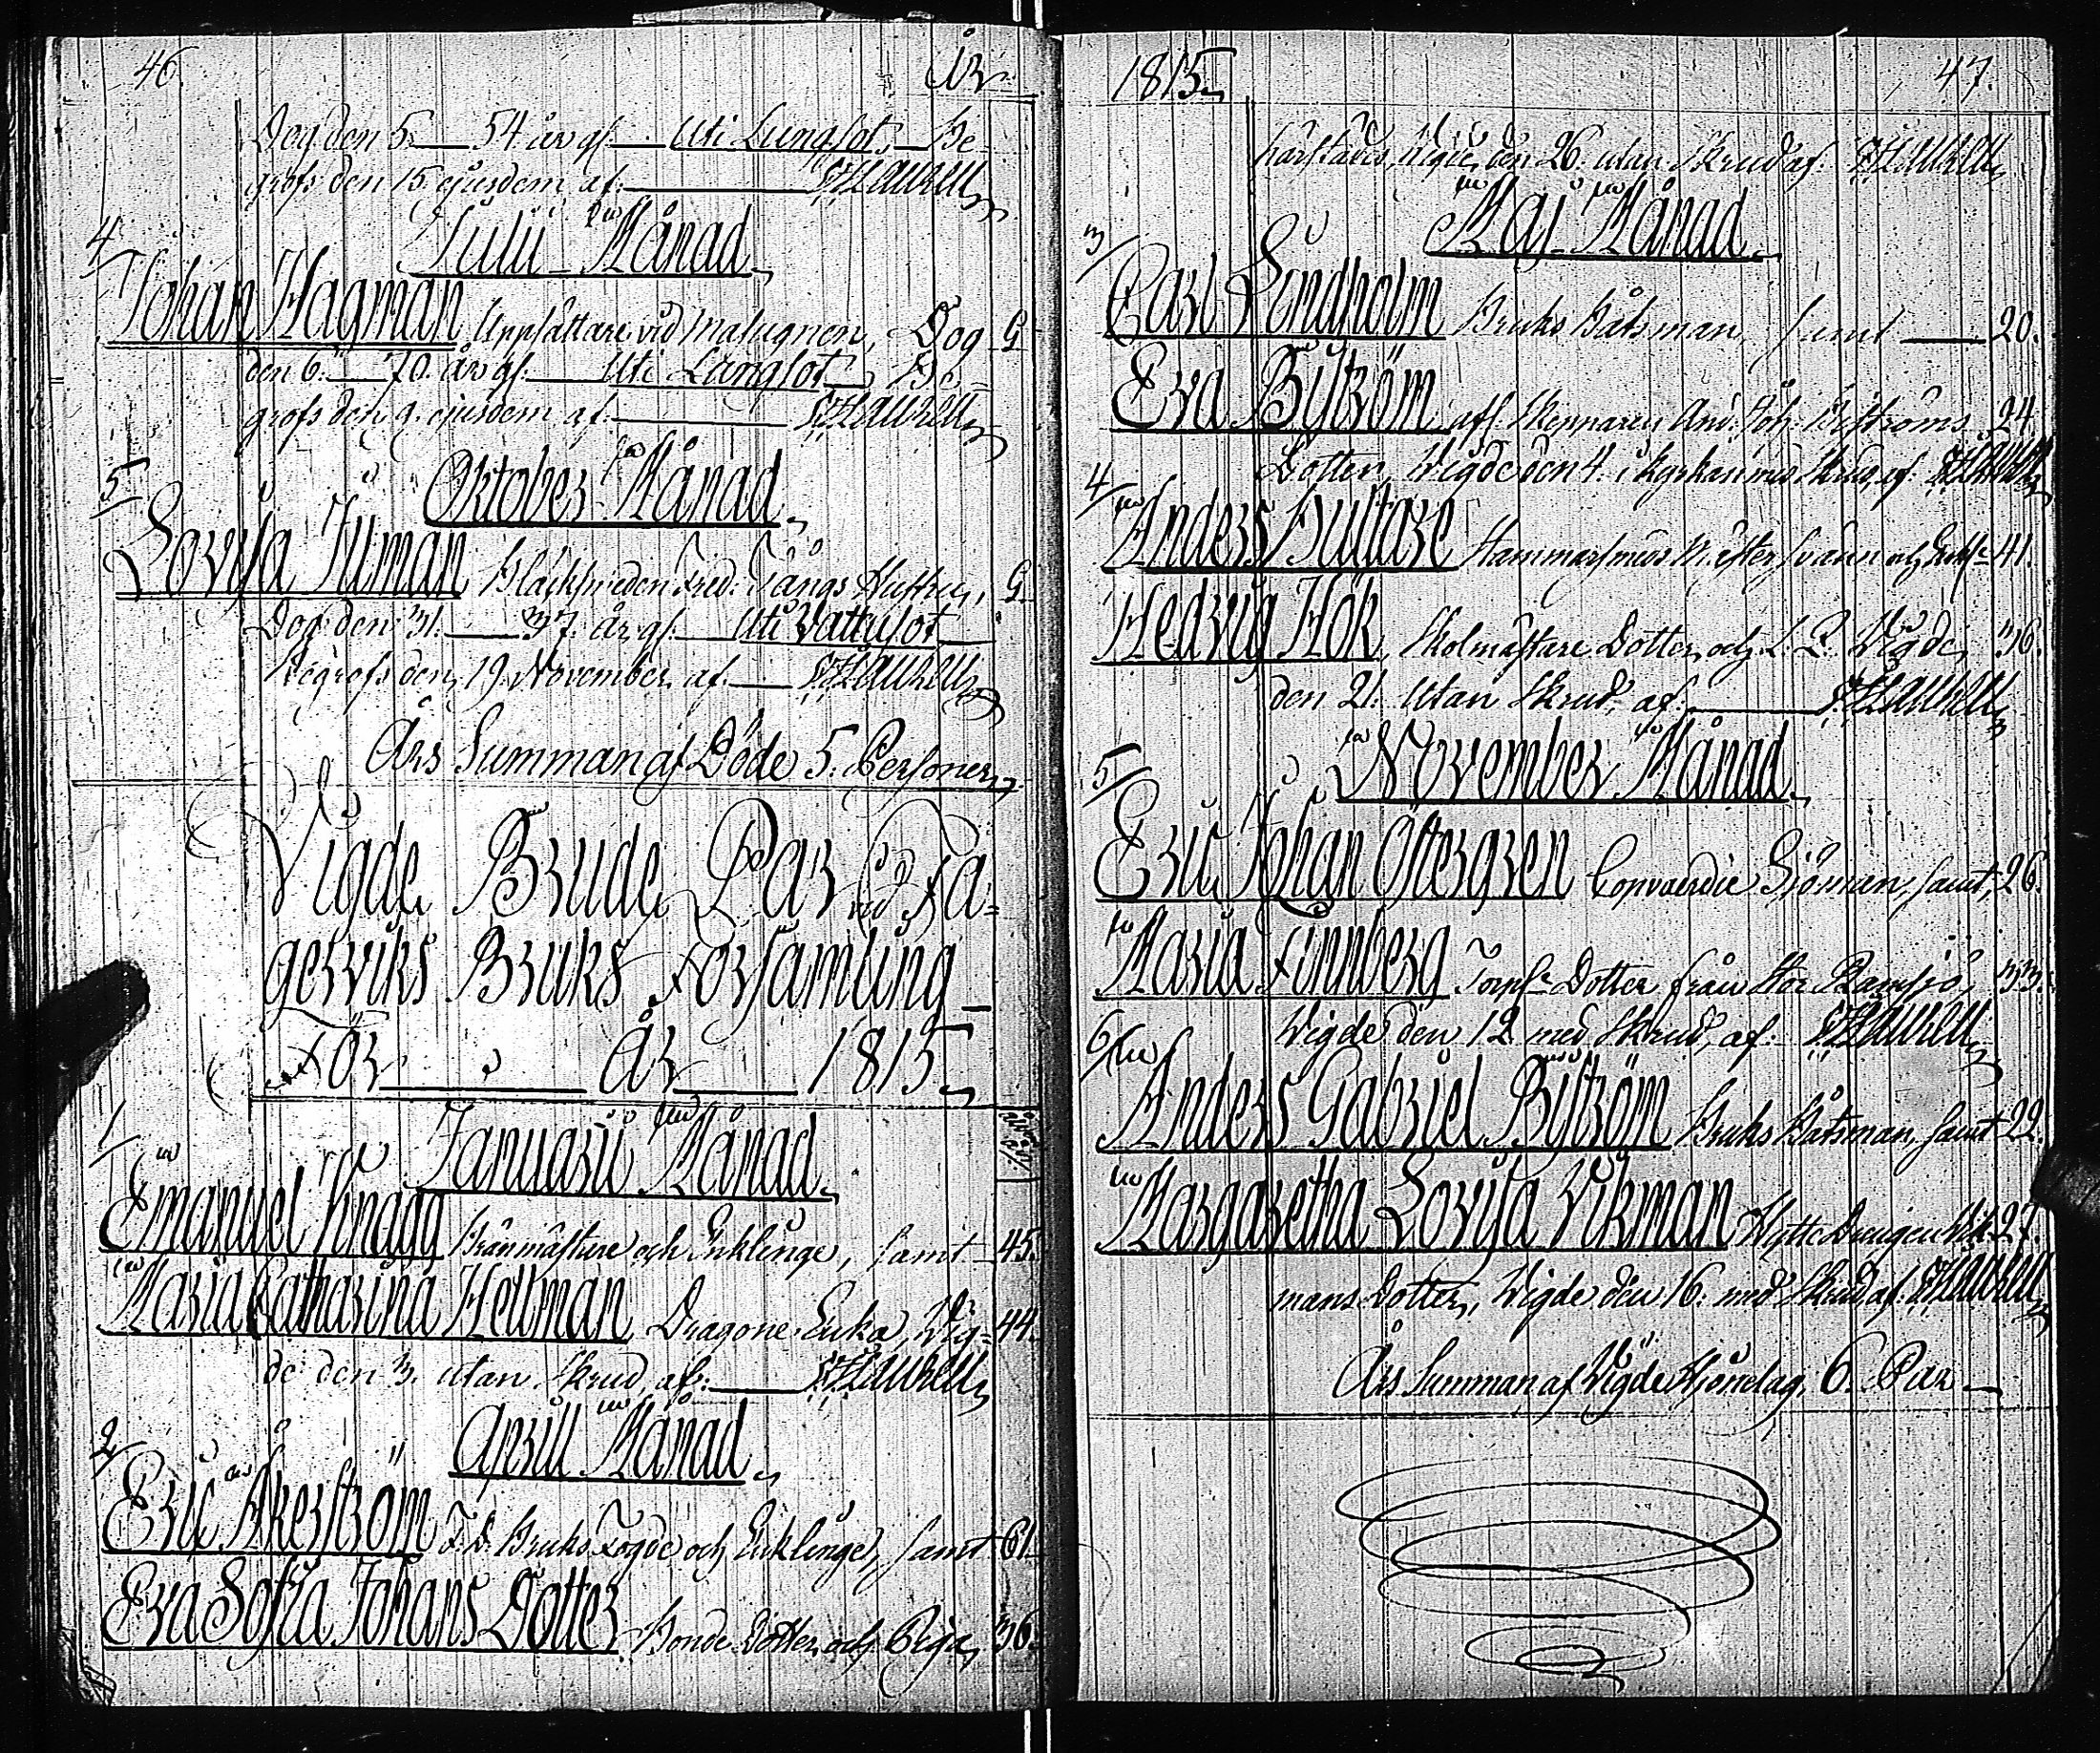 46. År
Dog den 5. 54 år gl. Uti Lungsot, Be-
grofs den 15 ejusdem af
4/ Julii Månad
Johan Hagman Uppsättare vid Masugnen, Dog G
den 6. 70. år gl. Uti Lungsot, Be-
grofs den 9. ejusdem af
5/ Oktober Månad
Lovisa Juman Fred. Tångs Hustru, G
Dog den 31. 37. år gl. Uti Vattusot
Begrofs den 19 November af
Års Summan af Döde 5. Personer
Vigde Brude Par vid Fa-
gerviks Bruks Församling
För År 1815
1/ Januarii Månad
Emanuel Knagg Brånmästare och Enklinge, samt 45.
Maria Catharina Hellman Dragone Enka, Vig- 44.
de den 3. utan Skrud, af:
2/ Aprill Månad
Eric Åkerström F.D. Bruks Fogde och Enklinge, samt 61.
Eva Sofia Johans Dotter Bonde Dotter och Piga, 36.
1815 47.
härstädes, Vigde den 26. utan Skrud af:
3/ Maj Månad
Carl Lindholm Bruks Båtsman, samt 20.
Eva Byström afl. Skepparen And. Joh. Byströms 24.
Dotter, Wigde den 4. i kyrkan med Skrud, af
4/ Anders Hultare Hammarsmeds Mäster svenn och 41.
Hedvig Hök, Skolmästare Dotter, och Wigde 36.
den 21. Utan Skrud, af
5/ November Månad
Eric Johan Östergren Copvaerdie Sjöman, samt 26.
Maria Finnberg Torps Dotter från Stor Ramsjö, 33.
Wigde den 12 med Skrud, af:
6/ Anders Gabriel Byström Bruks Båtsman, samt 22.
Margaretha Lovisa Vikman Hytte Drängen Vik- 27.
mans Dotter, Wigde den 16. med Skrud af:
Års Summan af Vigde Hjonelag, 6. Par